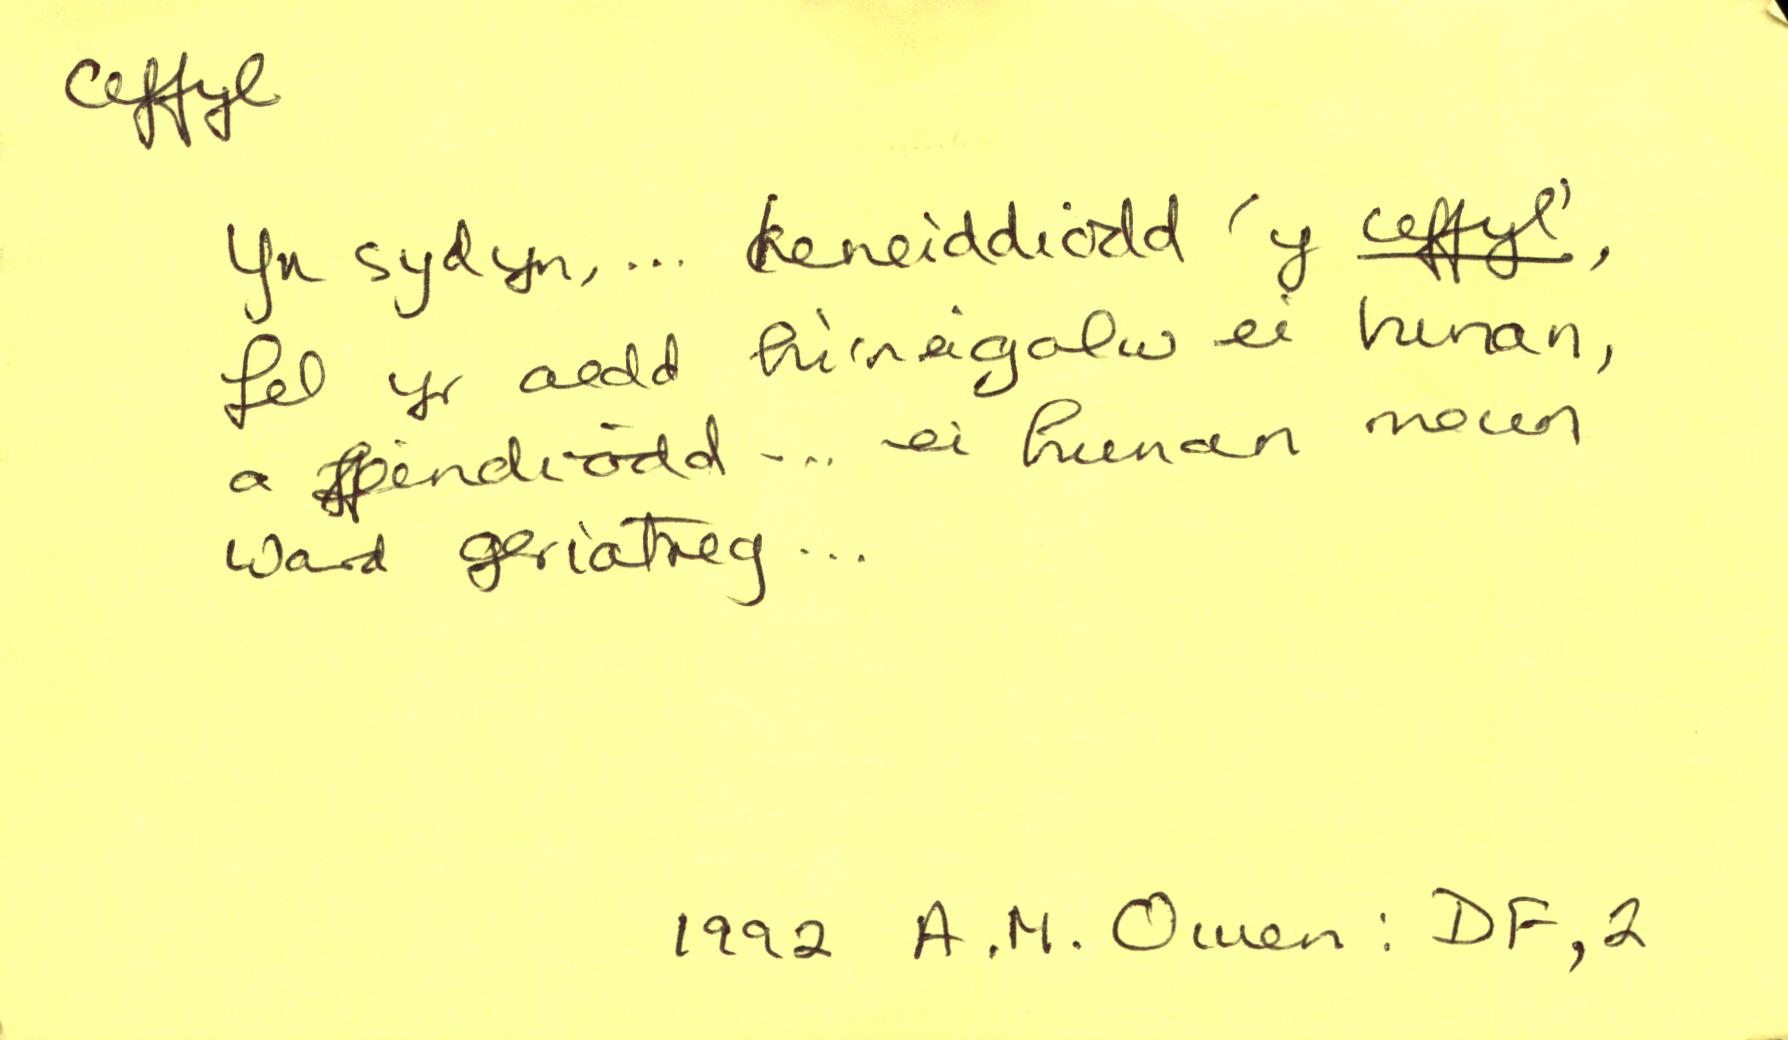 Ceffyl
Yn sydyn, ... heneiddiodd 'y ceffyl',
fel yr oedd hi'n ei galw ei hunan,
a ffeindiodd ... ei hunan mewn
ward geriatreg ...
1992 A.M. Owen: DF, 2